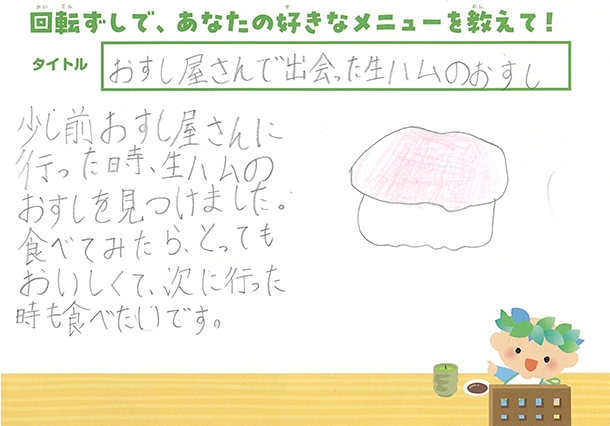 かい てん す おし
回転ずしで、あなたの好きなメニューを教えて！
タイトル おすし屋さんで出会った生ハムのおすし
少し前おすし屋さんに
行った時、生ハムの
おすしを見つけました。
食べてみたら、とっても
おいしくて、次に行った
時も食べたいです。